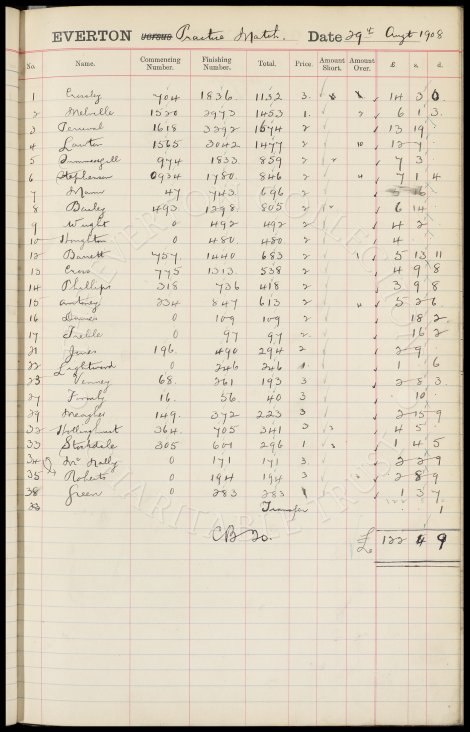 EVERTON versus Practice Match. Date 29th Augt 1908
No. Name. Commencing Number. Finishing Number. Total. Price. Amount Short. Amount Over. £ s. d.
1 Crosby 704 1836 1132 3. x x 14 3 0
2 Melville 1520 2973 1453 1. 2 6 1 3.
3 Percival 1618 3292 1674 2 13 19
4 Lawton 1565 3042 1477 2 10 12 7
5 974 1833 859 2 2 7 3
6 Stephenson 0934 1780 846 2 7 1 4
7 Mann 47 743 696 2 5 16
8 Bailey 493 1298 805 2 6 14
9 Wright 0 492 492 2 4 2
10 Houghton 0 480 480 2 4
12 Barrett 757 1440 683 2 1 5 13 11
13 Cross 775 1313 538 2 4 9 8
14 Phillips 318 736 418 2 3 9 8
15 234 847 613 2 5 2 6
16 Davies 0 109 109 2 18 2
17 Treble 0 97 97 2 16 2
21 Jones 196. 490 294 2 2 9
22 Lightwood 0 246 246 1 1 6
23 Venney 68. 261 193 3 2 8 3
27 16. 56 40 3 10
29 Meagher 149. 372 223 3 2 15 9
32 364 705 341 3 4 5
33 Stockdale 305 601 296 1 1 4 5
34 Mc Nally 0 171 171 3. 2 2 9
35 Roberts 0 194 194 3 2 8 9
38 Green 0 283 283 1 1 3 7
33 Transfer 1
CB 20. £ 122 4 9
EVERTON COLLECTION
CHARITABLE TRUST